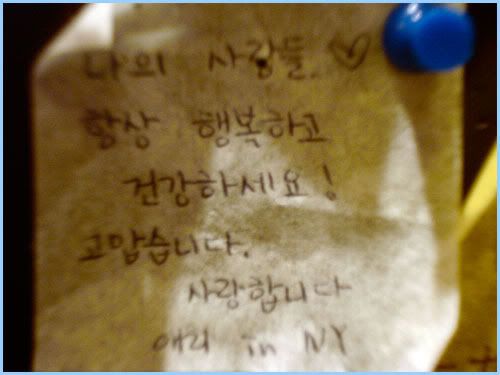 나의 사랑들 ♡
항상 행복하고
건강하세요!
고맙습니다.
사랑합니다
애리 in NY